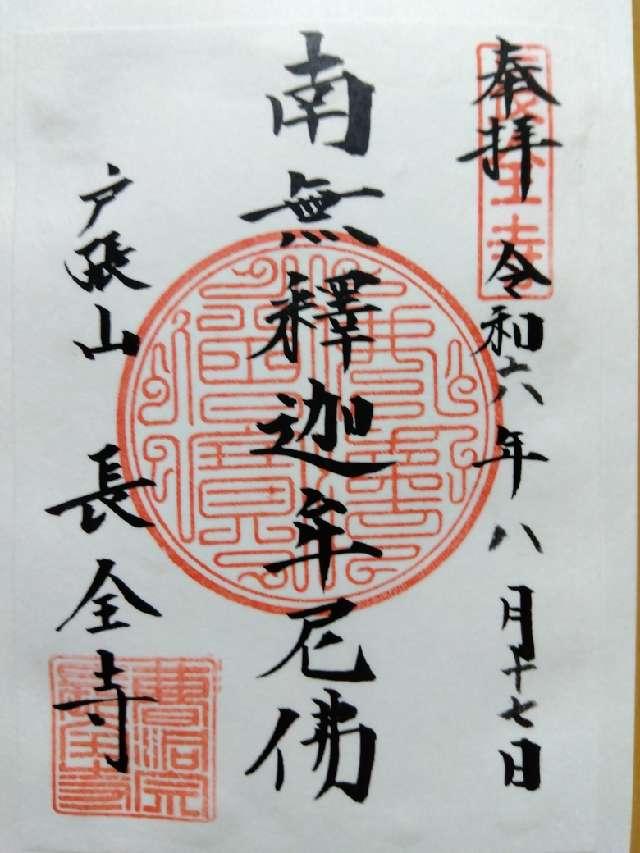 奉拝 令和六年八月十七日
南無釋迦牟尼佛
戸張山 長全寺